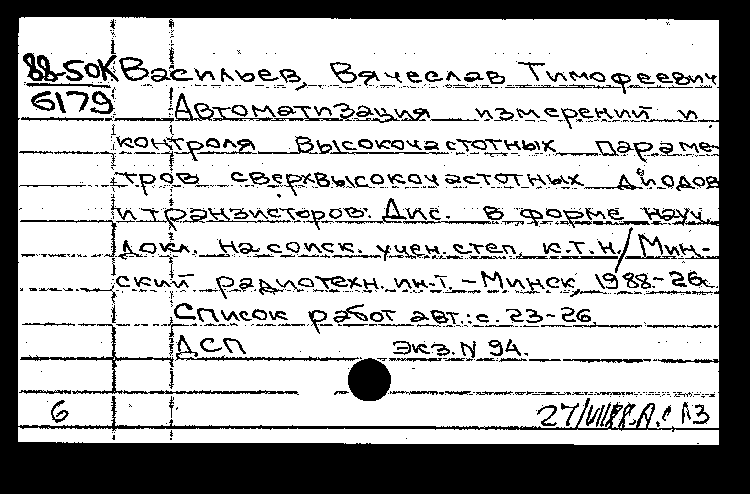 88-50К Васильев, Вячеслав Тимофеевич
6179 Автоматизация измерений и
контроля высокочастотных параме-
тров сверхвысокочастотных диодов
и транзисторов: Дис. в форме науч.
докл. на соиск. учен. степ. к.т.н/Мин-
ский радиотехн. ин-т. - Минск, 1988.-26с.
Список работ авт.: с. 23-26.
ДСП экз. N 94.
6 27/VII88.